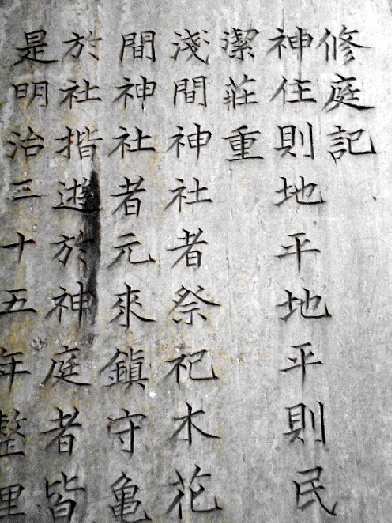 修庭記
神住則地平地平則民
潔莊重
淺間神社者祭祀木花
間神社者元來鎮守亀
於社揩遊於神庭者皆
是明治三十五年整理